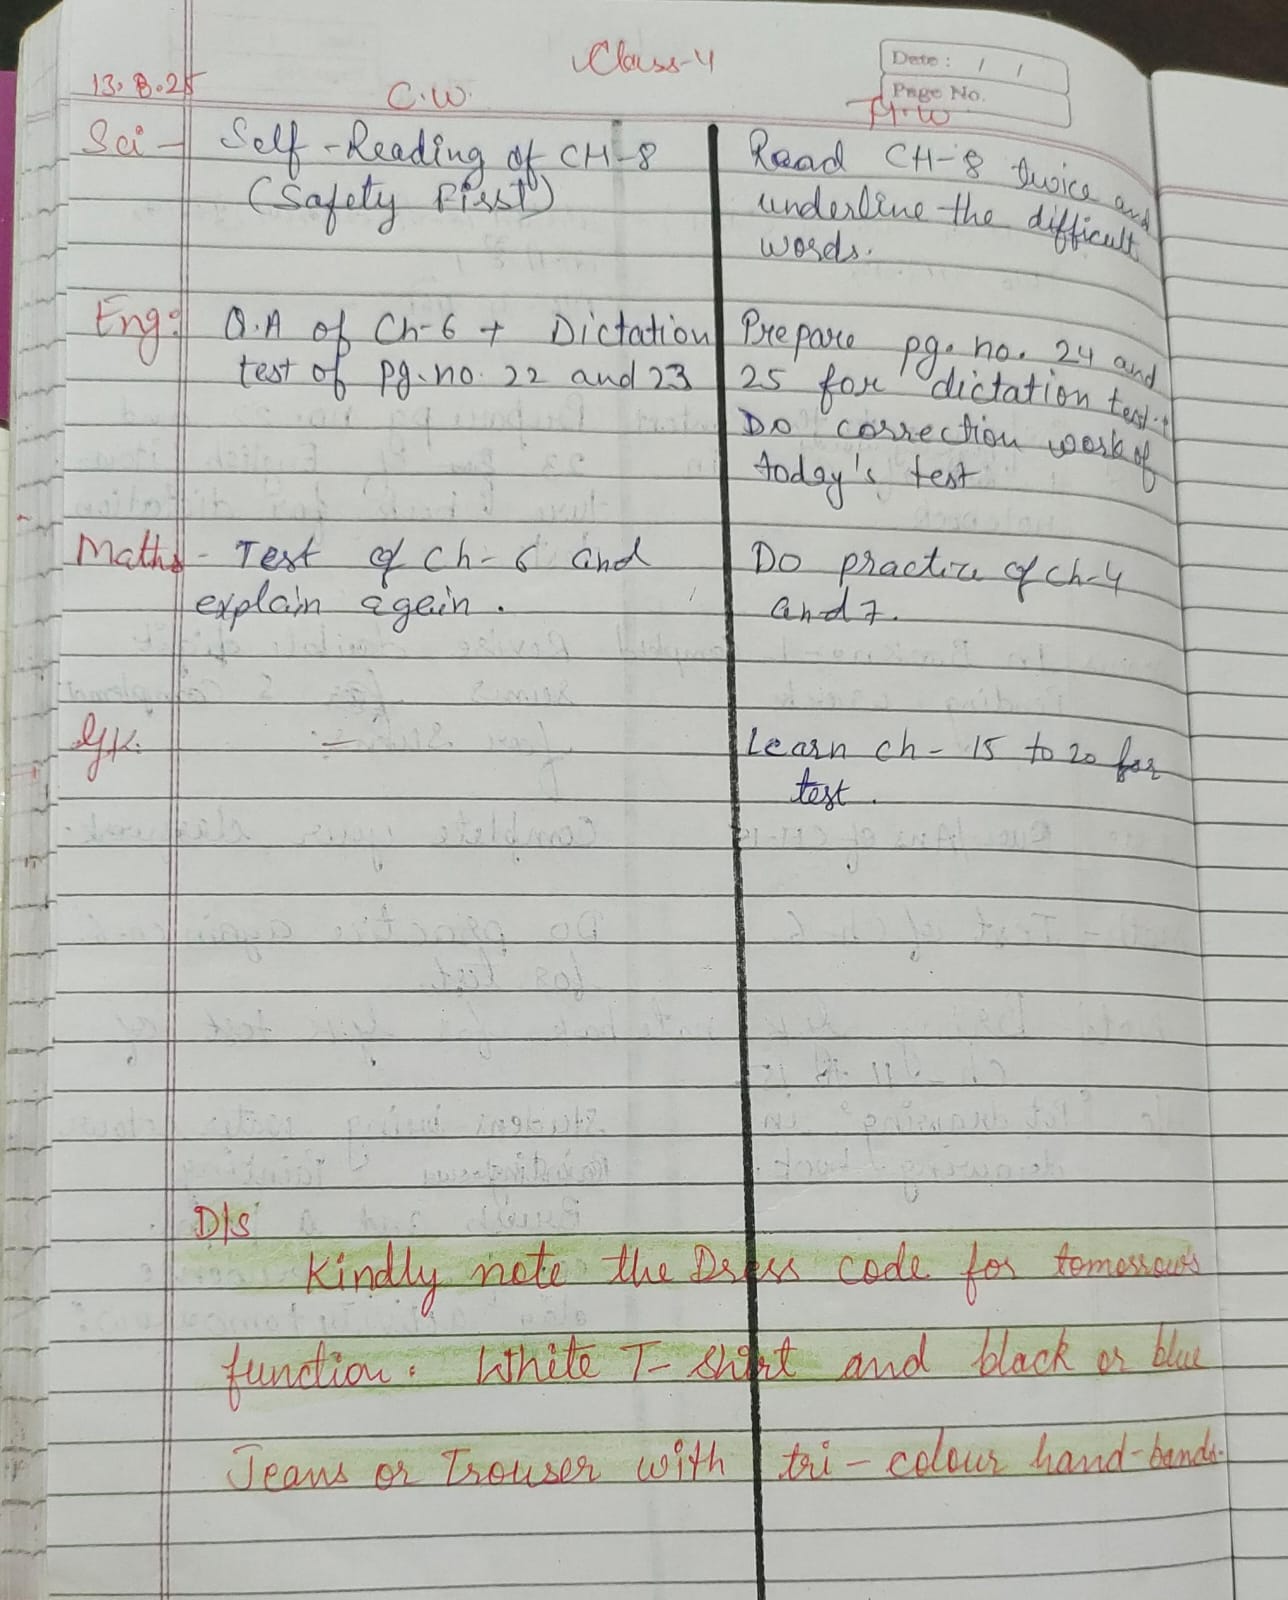 Class-4
Date : / /
13.8.25
C.W.
Page No.
H.W
Sci - Self-Reading of CH-8
(Safety First)
Read CH-8 twice and
underline the difficult
words.
Eng: Q.A of Ch-6 + Dictation
test of pg.no. 22 and 23
Prepare pg. no. 24 and
25 for dictation test.+
Do correction work of
today's test
Maths - Test of ch-6 and
explain again.
Do practice of ch-4
and 7.
G.K. -
Learn ch-15 to 20 for
test.
D/S
Kindly note the Dress code for tomorrow's
function: White T-shirt and black or blue
Jeans or Trouser with tri-colour hand-bands.